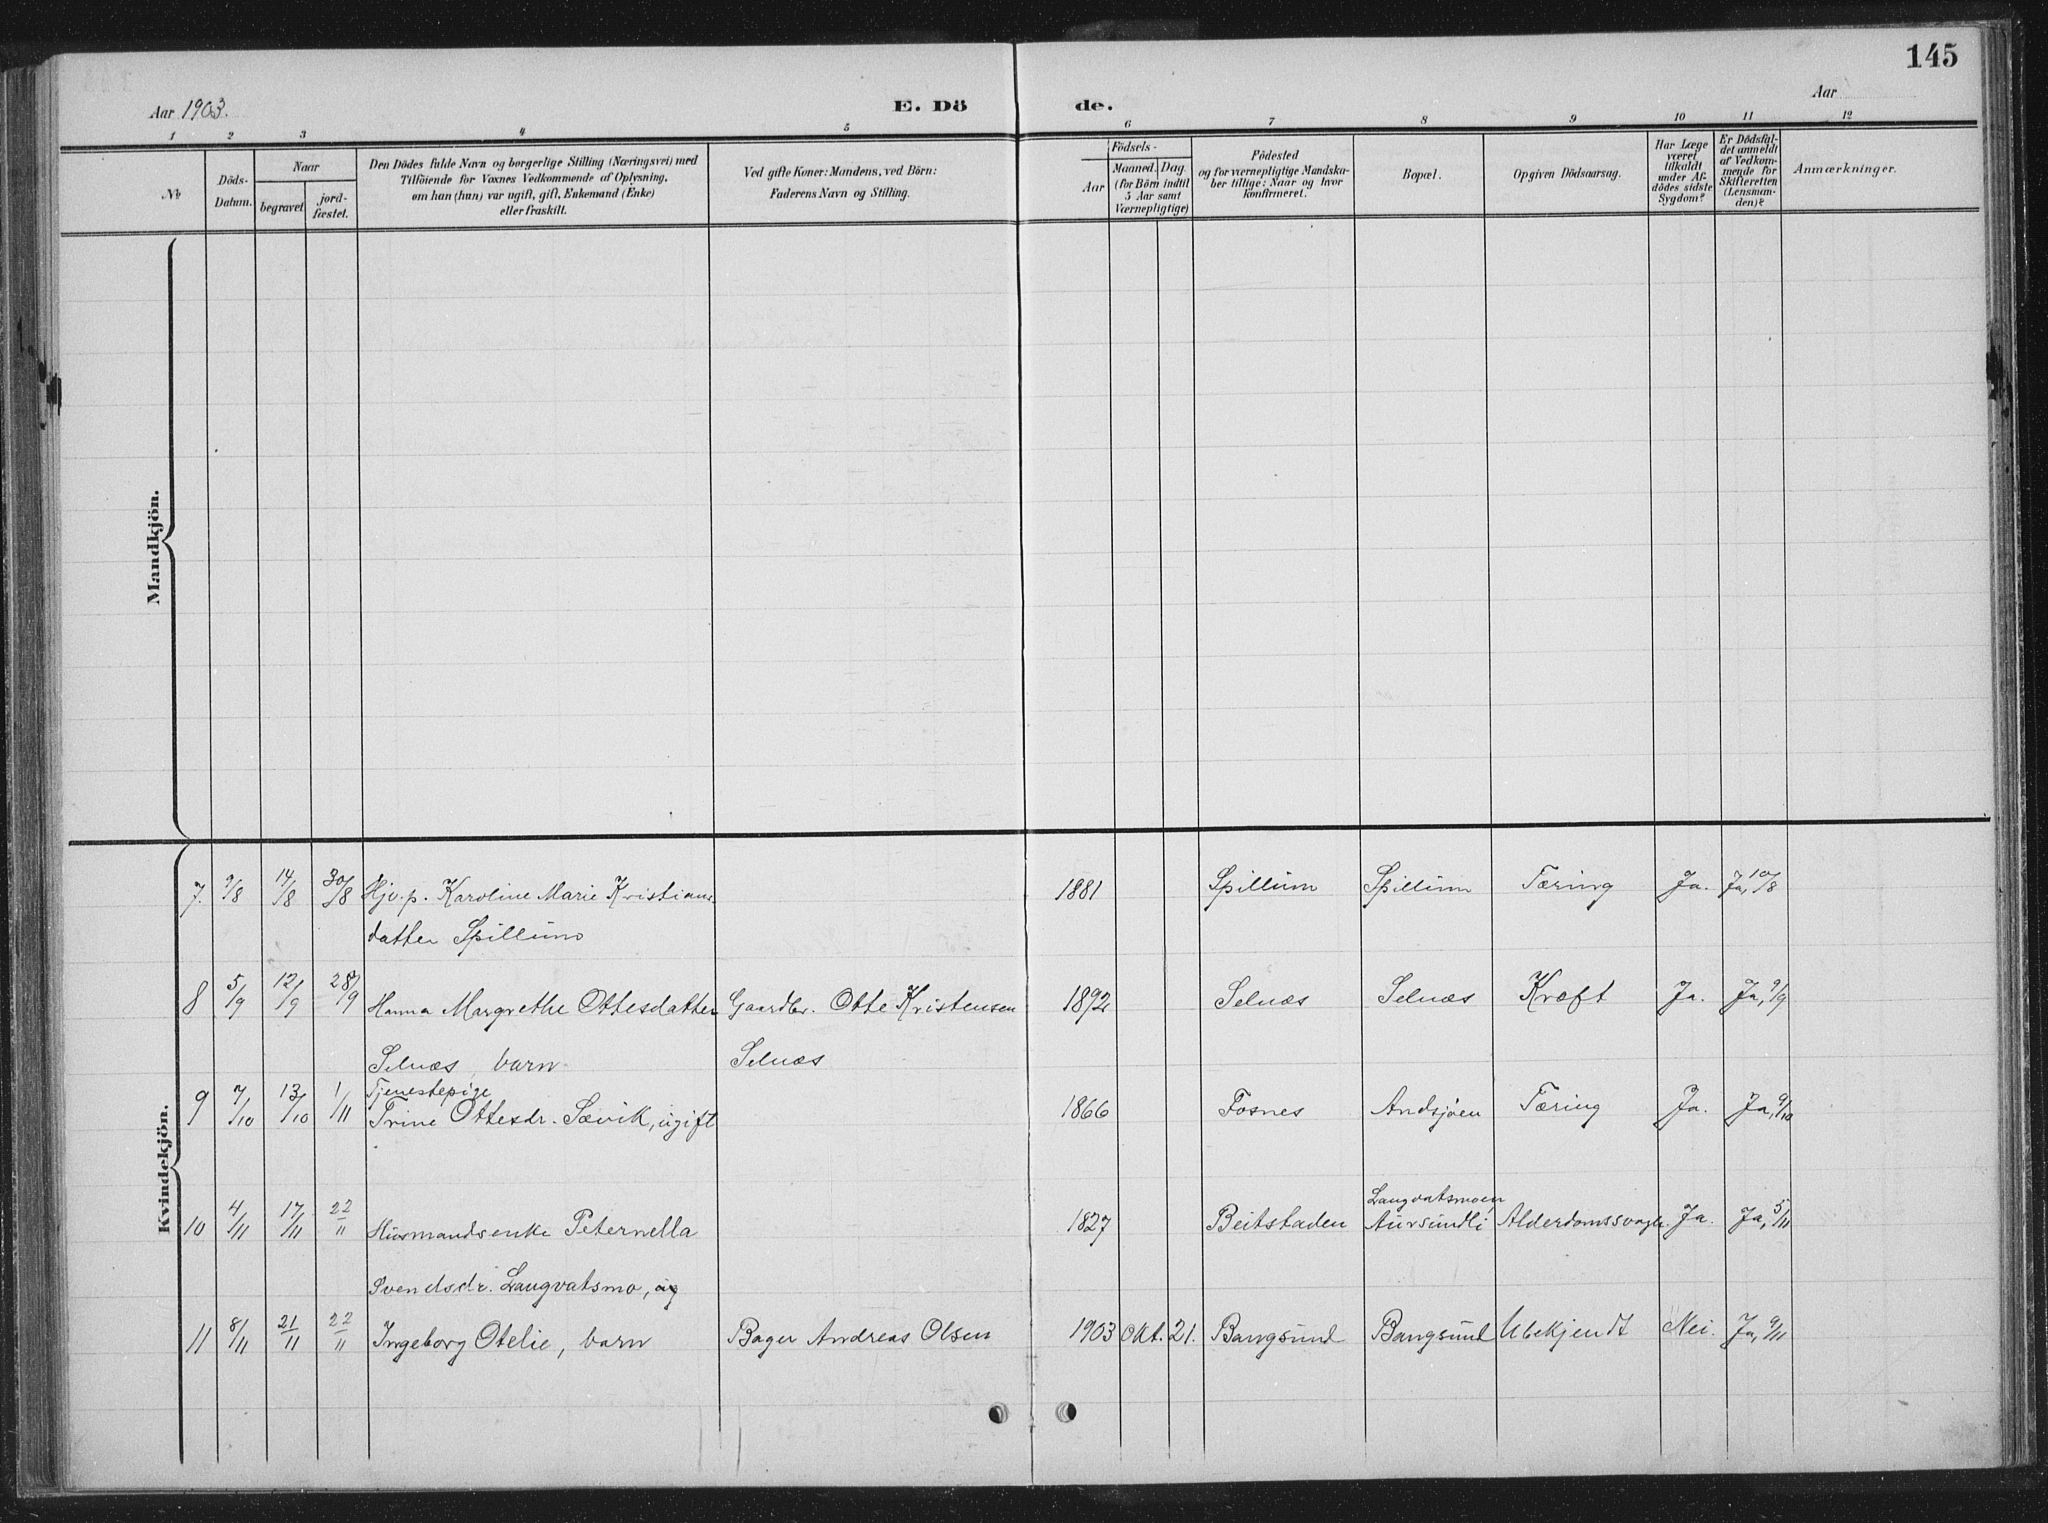 145
Aar 1903.
E. Dö de.
Aar
1 2 3 4 5 6 7 8 9 10 11 12
No
Döds-
Datum.
Naar
begravet.
jord-
fæstet.
Den Dödes fulde Navn og borgerlige Stilling (Næringsvei) med
Tilföiende for Voxnes Vedkommende af Oplysning,
om han (hun) var ugift, gift, Enkemand (Enke)
eller fraskilt.
Ved gifte Koner: Mandens, ved Börn:
Faderens Navn og Stilling.
Födsels-
Aar
Maaned. Dag.
(for Börn indtil
5 Aar samt
Værnepligtige)
Födested
og for værnepligtige Mandska-
ber tillige: Naar og hvor
konfirmeret.
Bopæl.
Opgiven Dödsaarsag.
Har Læge
været
tilkaldt
under Af-
dödes sidste
Sygdom?
Er Dödsfal-
det anmeldt
af Vedkom-
mende for
Skifteretten
(Lensman-
den)?
Anmærkninger.
Mandkjön.
Kvindekjön.
7. 9/8 14/8 30/8 Hjv.p. Karoline Marie Kristians- 1881 Spillum Spillum Tæring Ja. Ja, 10/8
datter Spillum
8 5/9 12/9 28/9 Hanna Margrethe Ottesdatter Gaardbr. Otte Kristensen 1892 Selnæs Selnæs Kræft Ja. Ja, 9/9
Selnæs, barn Selnæs
Tjenestepige
9 7/10 13/10 1/11 Trine Ottesdr. Sævik, ugift 1866 Fosnes Andsjöen Tæring Ja. Ja, 9/10
Langvatsmoen
10 4/11 17/11 22/11 Husmandsenke Peternella 1827 Beitstaden Aursundli Alderdomssvagh. Ja. Ja, 5/11
Svendsdr. Langvatsmo,
11 8/11 21/11 22/11 Ingeborg Otelie, barn Bager Andreas Olsen 1903 Okt. 21. Bangsund Bangsund Ubekjendt Nei. Ja, 9/11